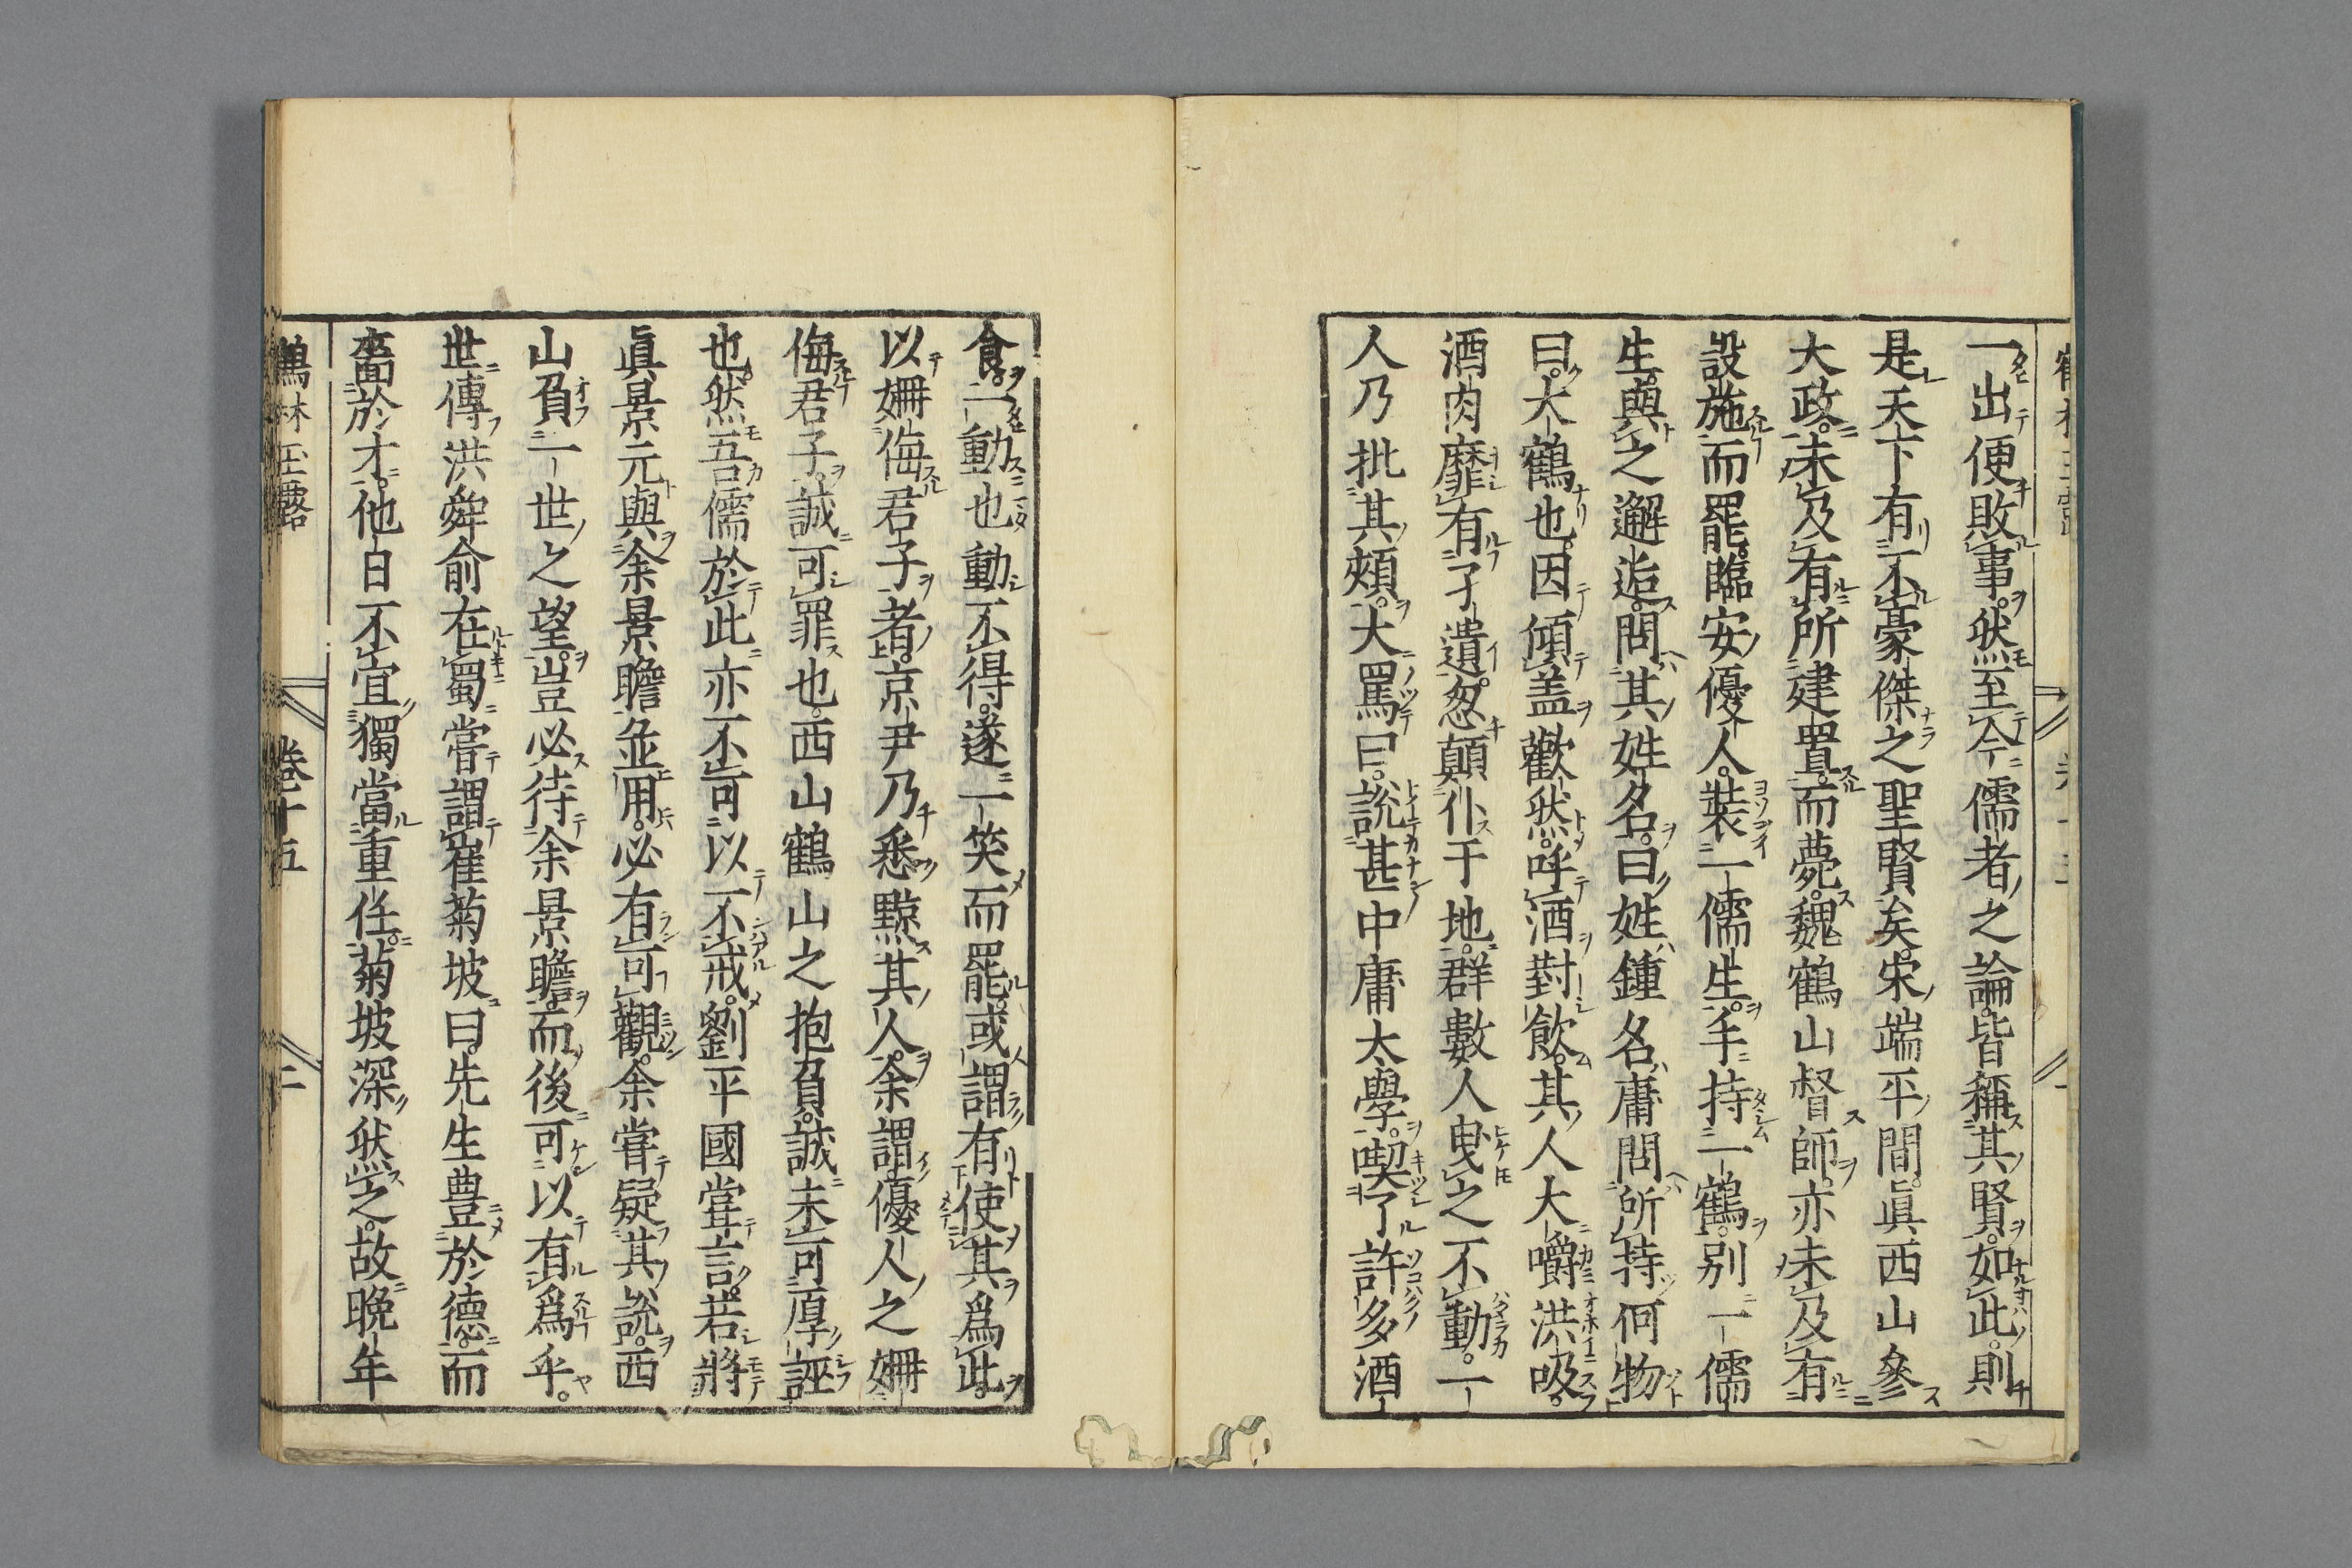 一出便敗事。然至今儒者之論。皆稱其賢。如此。則
是天下有不豪傑之聖賢矣。宋端平間。眞西山參
大政。未及有所建置。而薨。魏鶴山督師。亦未及有
設施而罷。臨安優人。裝一儒生。手持一鶴。別一儒
生。與之邂逅。問其姓名。曰姓鍾名庸問所持何物
曰。大鶴也。因傾盖歡然。呼酒對飲。其人大嚼洪吸。
酒肉靡有孑遺。忽顛仆于地。群數人曳之不動。一
人乃批其頰。大罵曰。說甚中庸大學。喫了許多酒
食。一動也動不得。遂一笑而罷。或謂有使其爲此。
以姍侮君子者。京尹乃悉黥其人。余謂優人之姍
侮君子。誠可罪也。西山鶴山之抱負。誠未可厚誣
也。然吾儒於此亦不可以不戒。劉平國嘗言。若將
眞景元與余景瞻並用。必有可觀。余嘗疑其說。西
山負一世之望。豈必待余景瞻。而後可以有爲乎。
世傳洪舜俞在蜀嘗謂崔菊坡曰。先生豊於德。而
嗇於才。他日不宜獨當重任。菊坡深然之。故晩年
鶴林玉露 卷十五 二